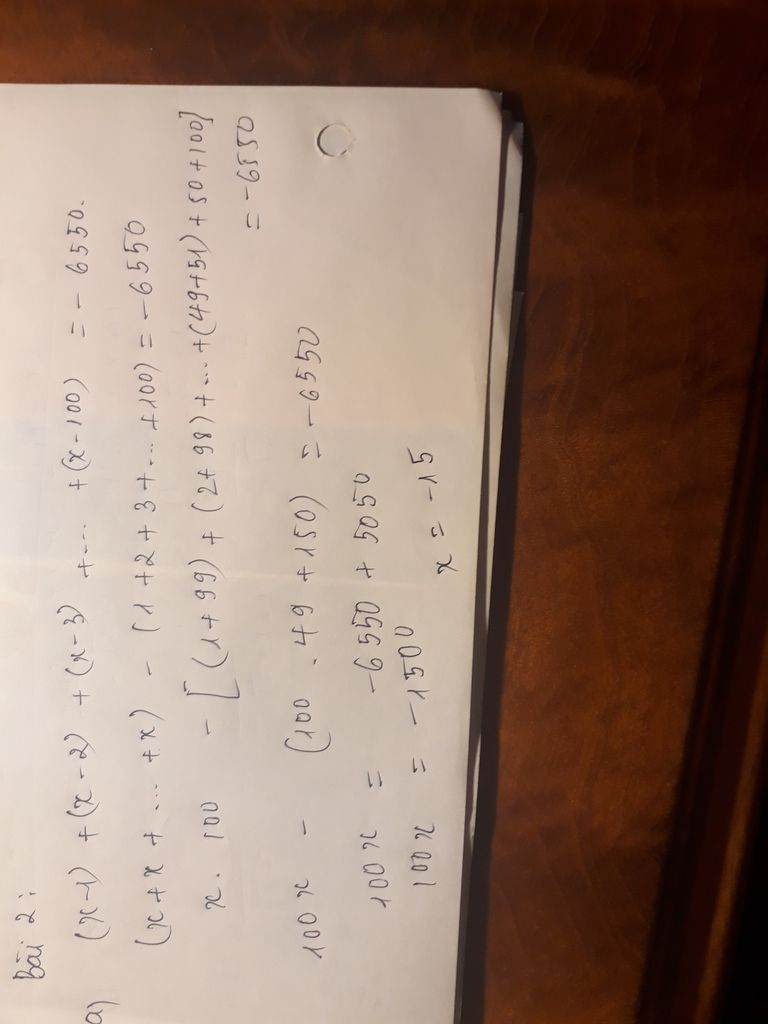 Bài 2:
a) (x-1) + (x-2) + (x-3) + ... + (x-100) = - 6550.
(x+x + ... +x) - (1+2+3+...+100) = -6550
x. 100 - [(1+99) + (2+98) + ... +(49+51)+50+100]
= -6550
100x - (100 . 49 +150) = -6550
100x = -6550 + 5050
100x = -1500
x = -15